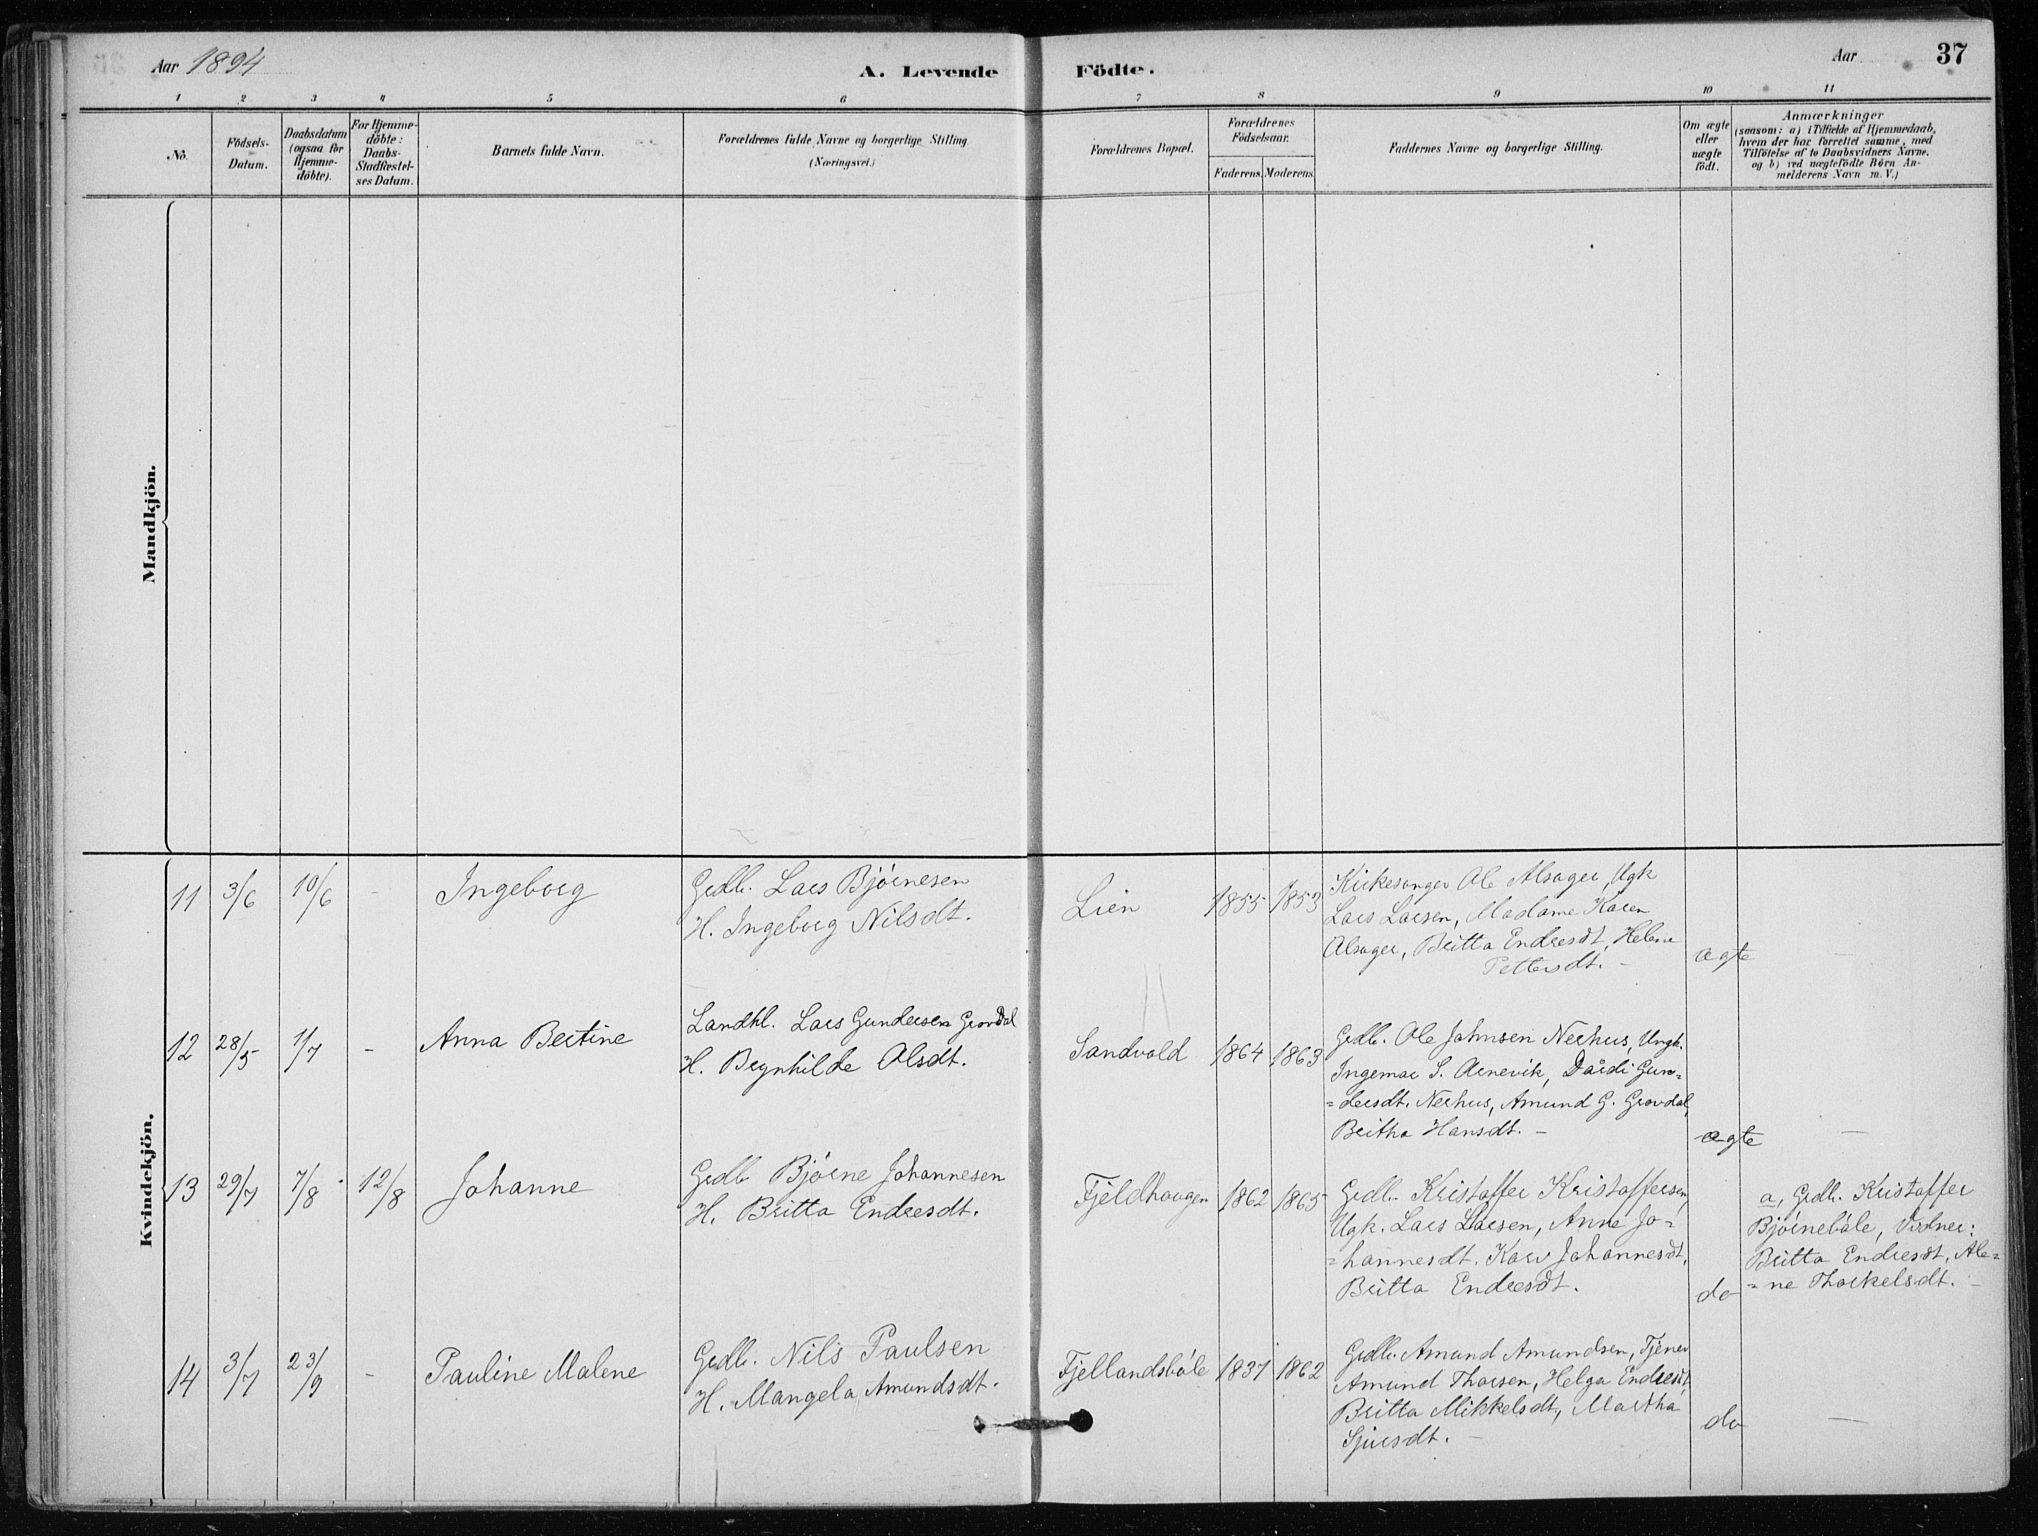 Aar 1894
A. Levende Födte.
Aar
37
1 2 3 4 5 6 7 8 9 10 11
No.
Födsels-Datum.
Daabsdatum (ogsaa for Hjemme-döbte).
For Hjemme-döbte: Daabs-Stadfæstel-ses Datum.
Barnets fulde Navn.
Forældrenes fulde Navne og borgerlige Stilling
(Næringsvei.)
Forældrenes Bopæl.
Forældrenes Födselsaar.
Faderens. Moderens.
Faddernes Navne og borgerlige Stilling.
Om ægte eller uægte födt.
Anmærkninger
(saasom: a) i Tilfælde af Hjemmedaab,
hvem der har forrettet samme, med
Tilföielse af to Daabsvidners Navne,
og b) ved uægtefödte Börn An-
melderens Navn m. V.)
Mandkjön.
Kvindekjön.
11 3/6 10/6 - Ingeborg
Grdb. Lars Bjørnesen
H. Ingeborg Nilsdt.
Lien 1855 1853
Kirkesanger Ole Alsager, Ugk
Lars Larsen, Madame Karen
Alsager, Britta Endresdt, Helene
Pettersdt. -
ægte
-
12 28/5 1/7 - Anna Bertine
Landhl. Lars Gundersen Grovdal
H. Brynhilde Olsdt.
Sandvold 1864 1863
Grdb. Ole Johnsen Nerhus, Ungk.
Ingemar S. Arnevik, Dårdi Gun=
=dersdt. Nerhus, Amund G. Grovdal,
Britha Hansdt. -
ægte
-
13 29/7 7/8 12/8 Johanne
Grdb Bjørne Johannesen
H. Britta Endresdt.
Fjeldhaugen 1862 1865
Grdb. Kristoffer Kristoffersen,
Ugk. Lars Larsen, Anne Jo=
=hannesdt. Kari Johannesdt,
Britta Endresdt.
do
a, Grdb. Kristoffer
Bjørnebøle, Vidner:
Britta Endresdt, Ale=
=ne Thorkelsdt. -
14 3/7 23/9 - Pauline Malene
Grdb. Nils Paulsen
H. Mangela Amundsdt.
Fjellandsbøle 1837 1862
Grdb. Amund Amundsen, Tjener
Amund Thorsen, Helga Endresdt,
Britta Mikkelsdt, Martha
Sjursdt. -
do
-